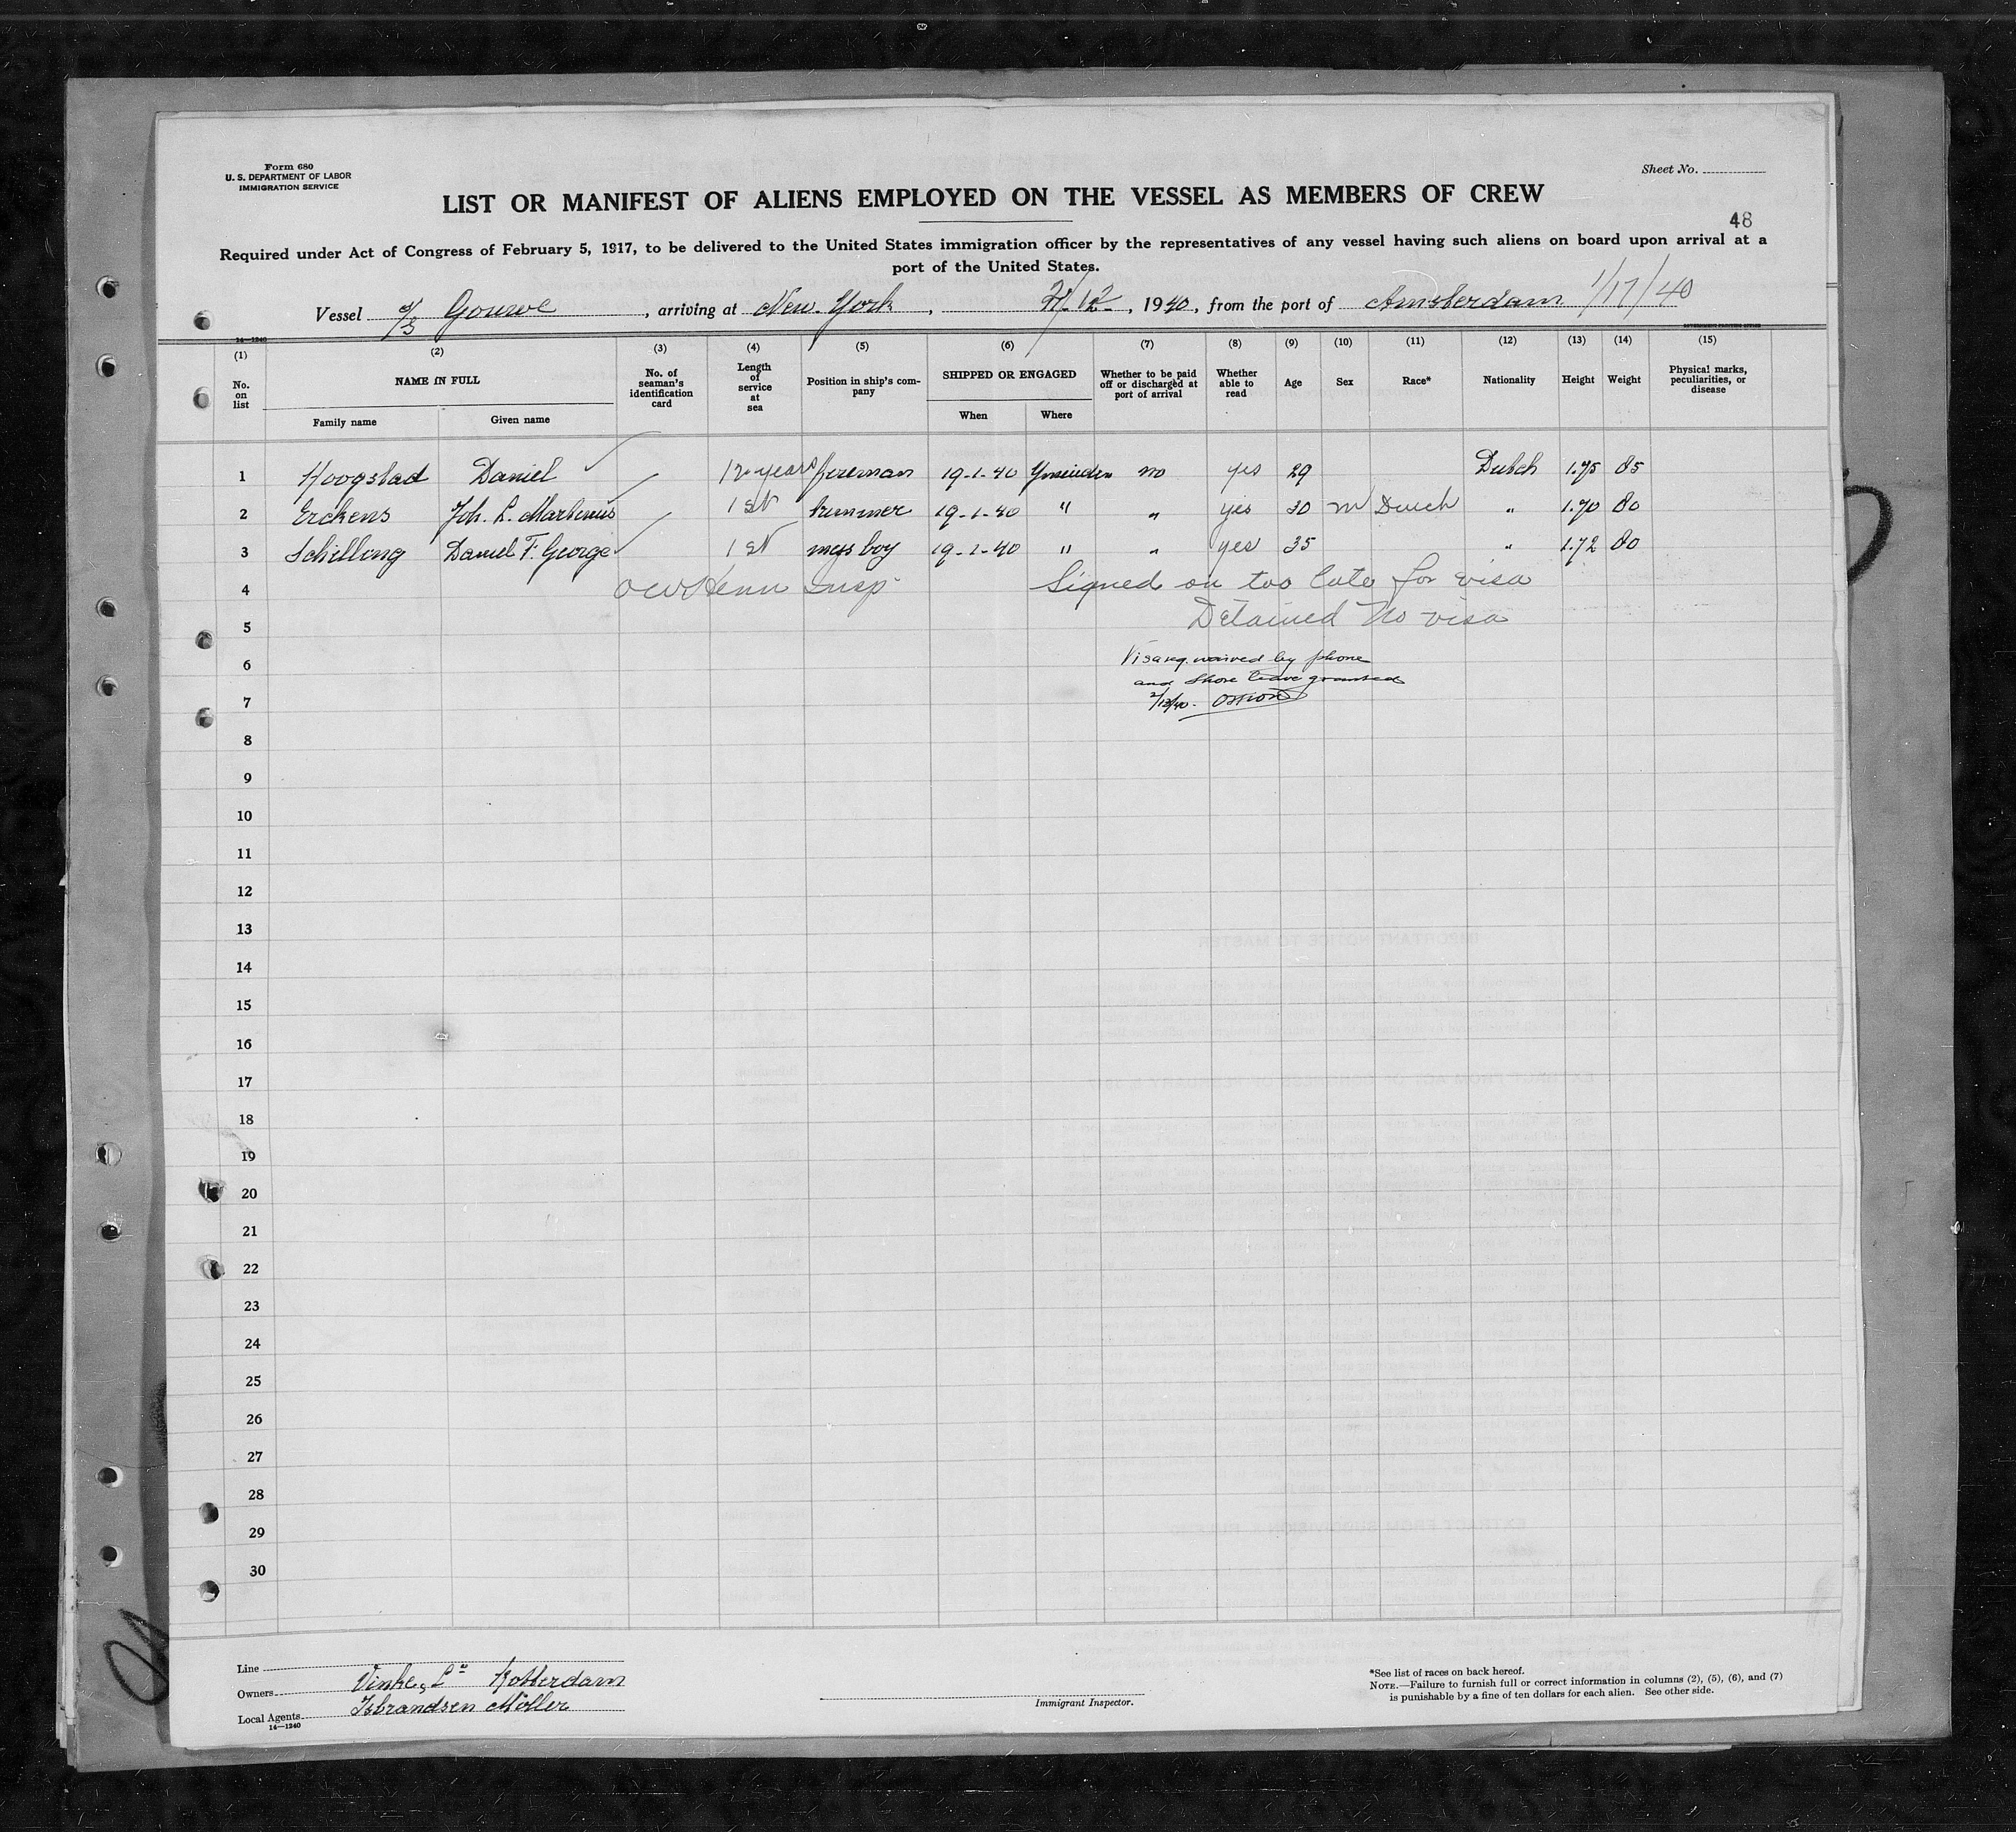 Form 680
U. S. DEPARTMENT OF LABOR
IMMIGRATION SERVICE
Sheet No.
LIST OR MANIFEST OF ALIENS EMPLOYED ON THE VESSEL AS MEMBERS OF CREW
48
Required under Act of Congress of February 5, 1917, to be delivered to the United States immigration officer by the representatives of any vessel having such aliens on board upon arrival at a
port of the United States.
Vessel s/s Gouwe, arriving at New. York, 2/12, 1940, from the port of Amsterdam 1/17/40
14—1240
GOVERNMENT PRINTING OFFICE
(1) (2) (3) (4) (5) (6) (7) (8) (9) (10) (11) (12) (13) (14) (15)
No. on list NAME IN FULL No. of seaman's identification card Length of service at sea Position in ship's company SHIPPED OR ENGAGED Whether to be paid off or discharged at port of arrival Whether able to read Age Sex Race* Nationality Height Weight Physical marks, peculiarities, or disease
Family name Given name When Where
1 Hoogstad Daniel 12 years fireman 19-1-40 Ymuiden no yes 29 Dutch 1.75 85
2 Erckens Joh. L. Martinus 1 st trimmer 19-1-40 " " yes 30 m Dutch " 1.70 80
3 Schelling Daniel F. George 1 st mess boy 19-1-40 " " yes 35 " 1.72 80
4 Insp Signed on too late for visa
5 Detained No visa
6 Visa req. waived by phone
and shore leave granted
7 2/13/40.
8
9
10
11
12
13
14
15
16
17
18
19
20
21
22
23
24
25
26
27
28
29
30
Line
Owners Vinke & Co Rotterdam
Local Agents Isbrandsen Möller
14—1240
Immigrant Inspector.
*See list of races on back hereof.
NOTE.—Failure to furnish full or correct information in columns (2), (5), (6), and (7)
is punishable by a fine of ten dollars for each alien. See other side.